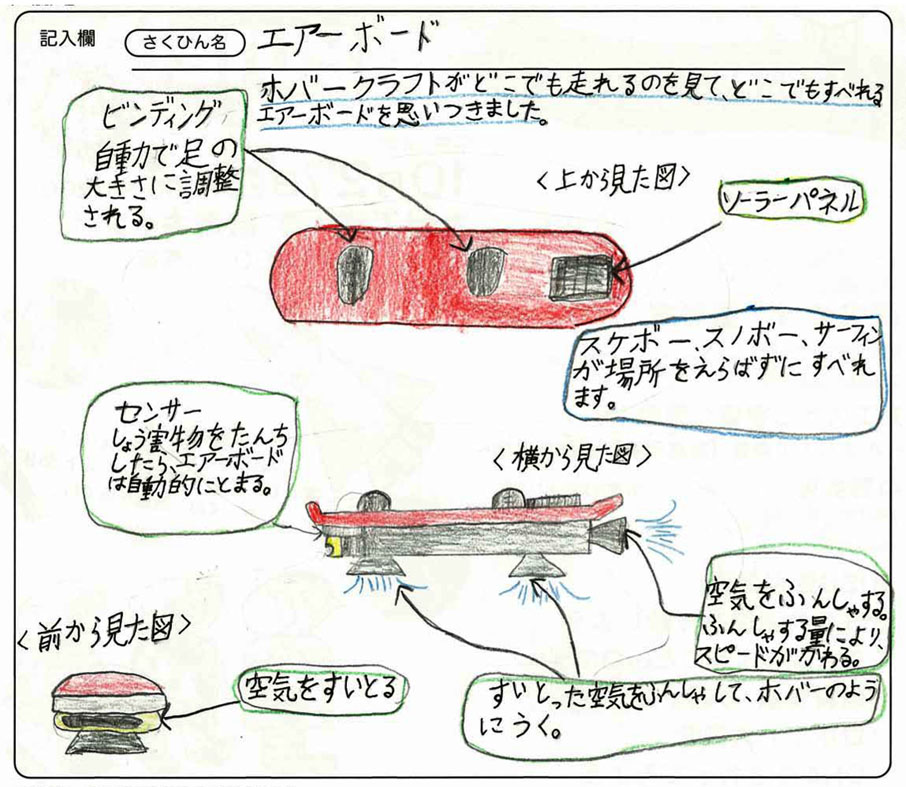 記入欄
さくひん名
エアーボード
ホバークラフトがどこでも走れるのを見て、どこでもすべれる
エアーボードを思いつきました。
ビンディング
自重力で足の
大きさに調整
される。
<上から見た図>
ソーラーパネル
スケボー、スノボー、サーフィン
が場所をえらばずにすべれ
ます。
センサー
しょう害物をたんち
したら、エアーボード
は自動的にとまる。
<横から見た図>
空気をふんしゃする。
ふんしゃする量により、
スピードがかわる。
<前から見た図>
空気をすいとる
すいとった空気をふんしゃして、ホバーのよう
にうく。